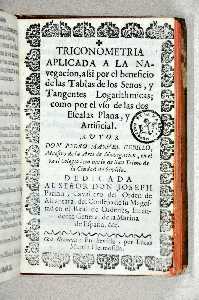 TRICONOMETRIA
APLICADA A LA NA-
vegacion, assi por el beneficio
de las Tablas de los Senos, y
Tangentes Logarithmicas;
como por el vso de las dos
Escalas Plana, y
Artificial.
AUTOR
DON PEDRO MANUEL CEDILLO,
Maestro de la Arte de Navegacion, en el
Real Colegio Seminario de San Telmo de
la Ciudad de Sevilla.
DEDICADA
AL SEÑOR DON JOSEPH
Patiño, Cavallero del Orden de
Alcantara, del Consejo de su Mages-
tad en el Real de Ordenes, Inten-
dente General de la Marina
de España, &c.
En Sevilla, por Lucas
Martin de Hermosilla.